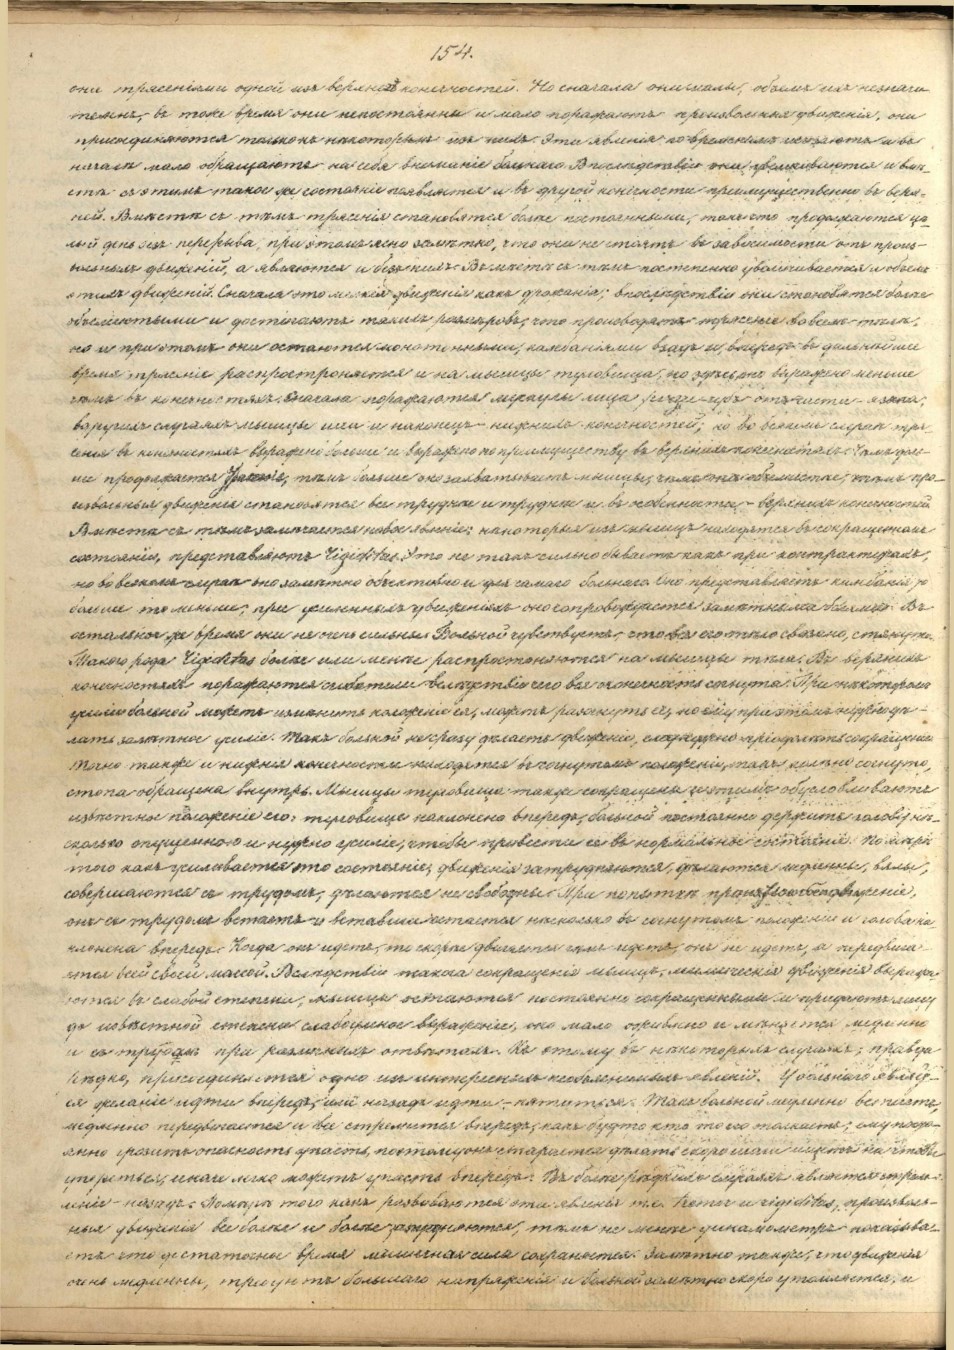 154.
они трясеніями одной изъ верхнихъ конечностей. Но сначала они малы, объемъ ихъ незначи
теленъ, въ тоже время они непостоянны и мало поражаютъ произвольныя движенія, они
присоединяются только къ некоторымъ изъ нихъ. Эти явленія со временемъ исчезаютъ и въ
началѣ мало обращаютъ на себя вниманіе больнаго. Впослѣдствіи они увеличиваются и вмѣ-
стѣ съ этимъ такое же состояніе появляется и въ другой конечности преимущественно въ верх-
ней. Вмѣстѣ съ тѣмъ трясенія становятся болѣе постоянными, такъ что продолжаются цѣ
лый день безъ перерыва, при этомъ ясно замѣтно, что они не стоятъ въ зависимости отъ произ-
вольныхъ движеній, а являются и безъ нихъ. Вмѣстѣ съ тѣмъ постепенно увеличивается и объемъ
этихъ движеній. Сначала это мелкія движенія какъ дрожанія; впослѣдствіи они становятся болѣе
объемистыми и достигаютъ такихъ размѣровъ, что производятъ трясеніе во всемъ тѣлѣ,
но и при этомъ они остаются монотонными, колебаніями взадъ и впередъ. Въ дальнѣйшее
время трясеніе распространяется и на мышцы туловища, но здѣсь онѣ выражено меньше
чѣмъ въ конечностяхъ. Сначала поражаются мускулы лица отчасти языка,
въ другихъ случаяхъ мышцы шеи и наконецъ – нижнихъ конечностей; но во всякомъ случаѣ тря-
сенія въ конечностяхъ выражено больше и выражено по преимуществу въ верхнихъ конечностяхъ. Чѣмъ доль-
ше продолжается трясеніе, тѣмъ больше оно захватываетъ мышцы, тѣмъ про-
извольныя движенія становятся все труднѣе и труднѣе и въ особенности – верхнихъ конечностей.
Вмѣстѣ съ тѣмъ замѣчается новое явленіе: некоторыя изъ мышцъ находятся въ сокращенномъ
состояніи, представляютъ rigiditas. Это не такъ сильно бываетъ какъ при контрактурахъ,
но во всякомъ случаѣ оно замѣтно объективно и для самого больнаго. Оно представляетъ колебанія то
больше то меньше, при усиленныхъ движеніяхъ оно сопровождается замѣтными болями. Въ
остальное же время они не очень сильны. Больной чувствуетъ, что все его тѣло связано, стянуто.
Такого рода rigiditas болѣе или менѣе распространяются на мышцы тѣла. Въ верхнихъ
конечностяхъ поражаются сгибатели вслѣдствіе чего вся конечность согнута. При некоторомъ
усиліи больной можетъ измѣнить положеніе ея, можетъ разогнуть ее, но ему при этомъ нужно дѣ-
лать замѣтное усиліе. Такъ больной не сразу дѣлаетъ движеніе, сокращеніе.
Точно также и нижнія конечности находятся въ согнутомъ положеніи, такъ колѣно согнуто,
стопа обращена внутрь. Мышцы туловища также сокращены и этимъ обусловливаютъ
извѣстное положеніе его: туловище наклонено впередъ, больной постоянно держитъ голову нѣ-
сколько опущенною и нужно усиліе, чтобы привести ее въ нормальное состояніе. По мѣрѣ
того какъ усиливается это состояніе, движенія затрудняются, дѣлаются медленны, вялы,
совершаются съ трудомъ, дѣлаются не свободны. При попыткѣ произвольное движеніе,
онъ съ трудомъ встаетъ и вставши остается нѣсколько въ согнутомъ положеніи и голова на-
клонена впередъ. Когда онъ идетъ, то скорѣе движется чѣмъ идетъ, онъ не идетъ, а передвига-
ется всей своей массой. Вслѣдствіе такого сокращенія мышцъ, мимическія движенія выража-
ются въ слабой степени, мышцы остаются постоянно сокращенными и придаютъ лицу
до извѣстной степени слабоумное выраженіе, оно мало оживлено и мѣняется медленно
и съ трудомъ при различныхъ отвѣтахъ. Къ этому въ некоторыхъ случаяхъ, правда
рѣдко, присоединяется одно изъ интересныхъ необъяснимыхъ явленій. У больнаго являет-
ся желаніе идти впередъ, или назадъ идти – пятиться. Такъ больной медленно встаетъ,
медленно передвигается и все стремится впередъ, какъ будто кто то его толкаетъ; ему посто-
янно грозитъ опасность упасть, поэтому онъ старается дѣлать скоро шаги
упереться, иначе легко можетъ упасть впередъ. Въ болѣе рѣдкихъ случаяхъ является стрем-
леніе – назадъ. По мѣрѣ того какъ развиваются эти явленья т.е. tremor и rigiditas, произволь-
ныя движенія все болѣе и болѣе затрудняются, тѣмъ не менѣе динамометръ показыва-
етъ что достаточное время мышечная сила сохраняется. Замѣтно также, что движенія
очень медленны, требуютъ большаго напряженія и больной замѣтно скоро утомляется, и